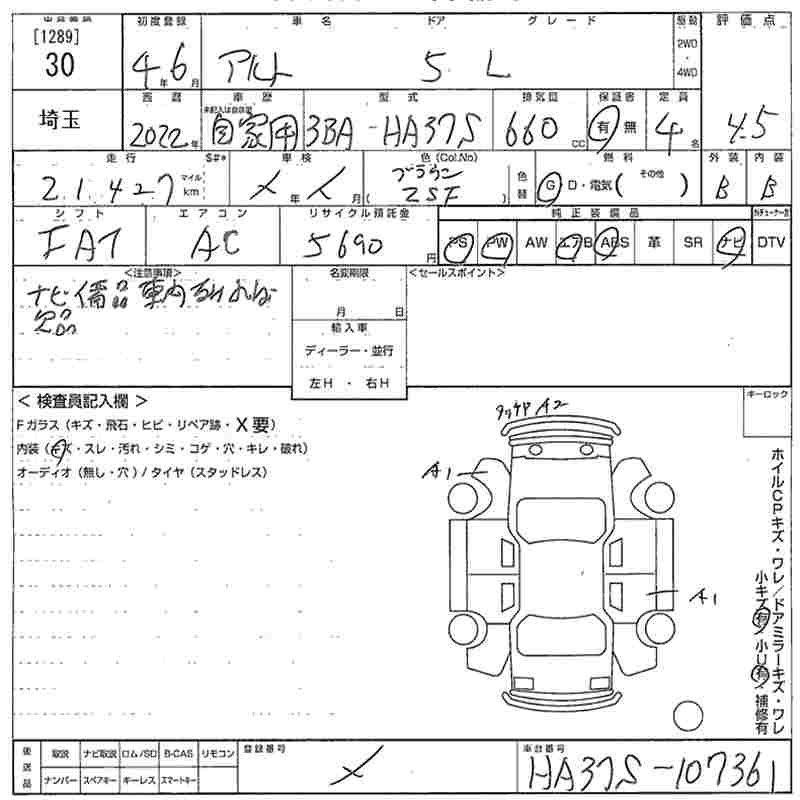 [1289]
30
初度登録
車名
ドア
グレード
駆動
評価点
4年6月
アルト
5
L
2WD
・
4WD
4.5
埼玉
西暦
車歴
型式
排気量
保証書
定員
未記入は自家用
2022年
自家用
3BA-HA37S
660cc
有・無
4名
走行
S#*
車検
色(Col.No)
燃料
外装
内装
21,427
マイル
km
年
月
ブラウン
(ZSF)
色替
G・D・電気(その他)
B
B
シフト
エアコン
リサイクル預託金
純正装備品
FAT
AC
5690円
PS
PW
AW
エアB
ABS
革
SR
ナビ
DTV
<注意事項>
名変期限
<セールスポイント>
ナビ備品車内なければ
欠品
月
日
輸入車
ディーラー・並行
左H・右H
<検査員記入欄>
キーロック
Fガラス(キズ・飛石・ヒビ・リペア跡・X要)
内装(キズ・スレ・汚れ・シミ・コゲ・穴・キレ・破れ)
オーディオ(無し・穴)/タイヤ(スタッドレス)
A2
A1
A1
ホイルCPキズ・ワレ/ドアミラーキズ・ワレ
小キズ有/小U有/補修有
後送品
取説
ナビ取説
ロム/SD
B-CAS
リモコン
ナンバー
スペアキー
キーレス
スマートキー
登録番号
メ
車台番号
HA37S-107361